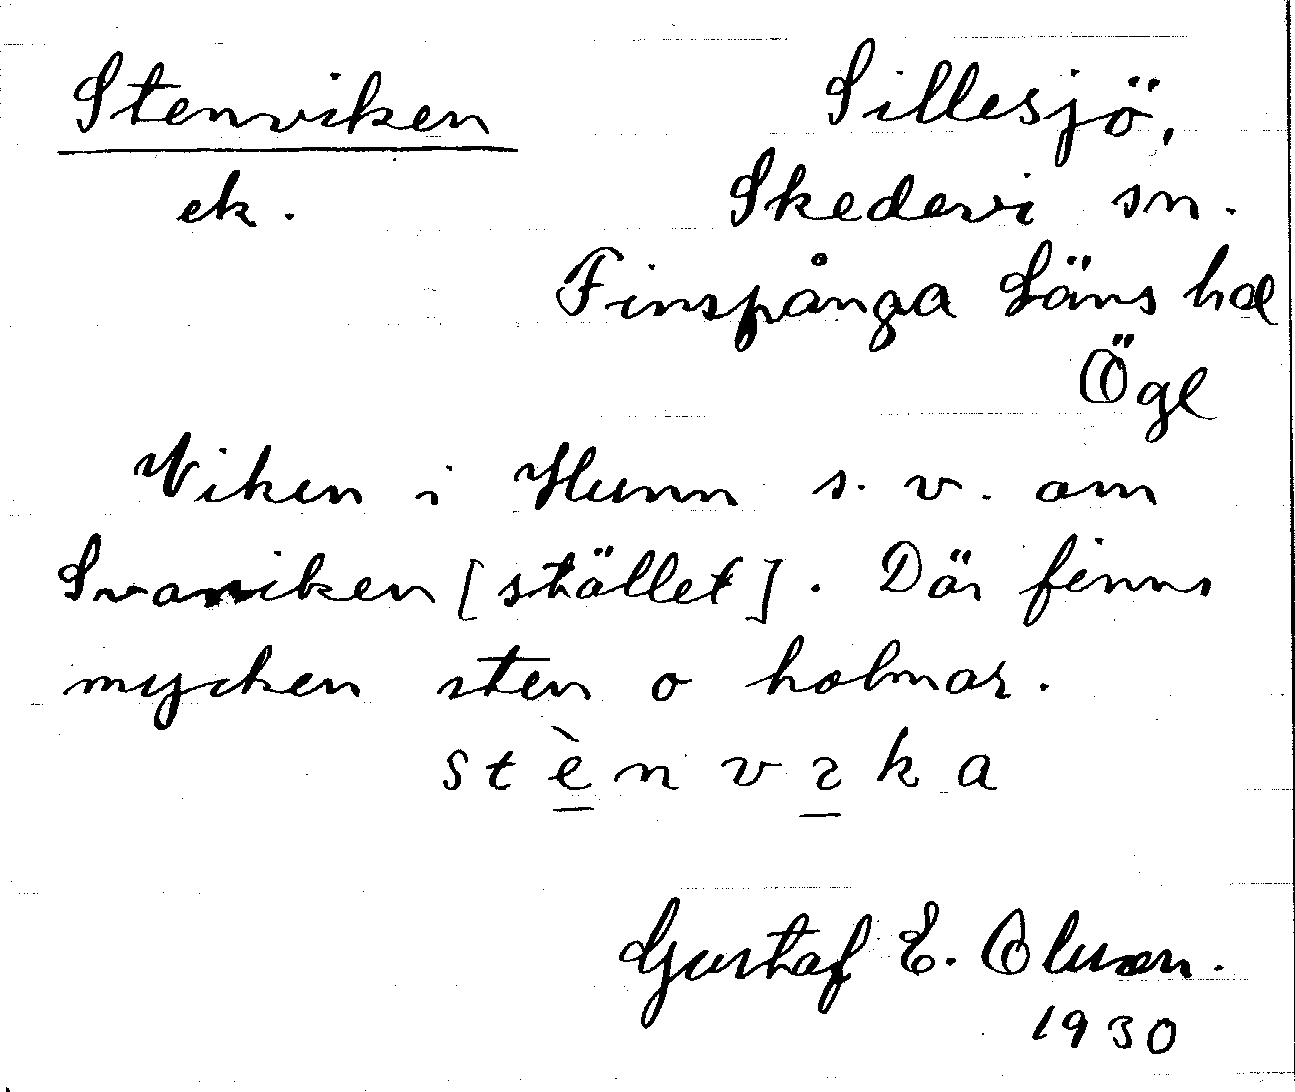 Stenviken
ek.
Sillesjö,
Skedevi sn.
Finspånga Läns hd
Ögl
Viken i Hunn s. v. om
Svanviken [stället]. Där finns
mycken sten o holmar.
stènvıka
Gustaf E. Olsson.
1930